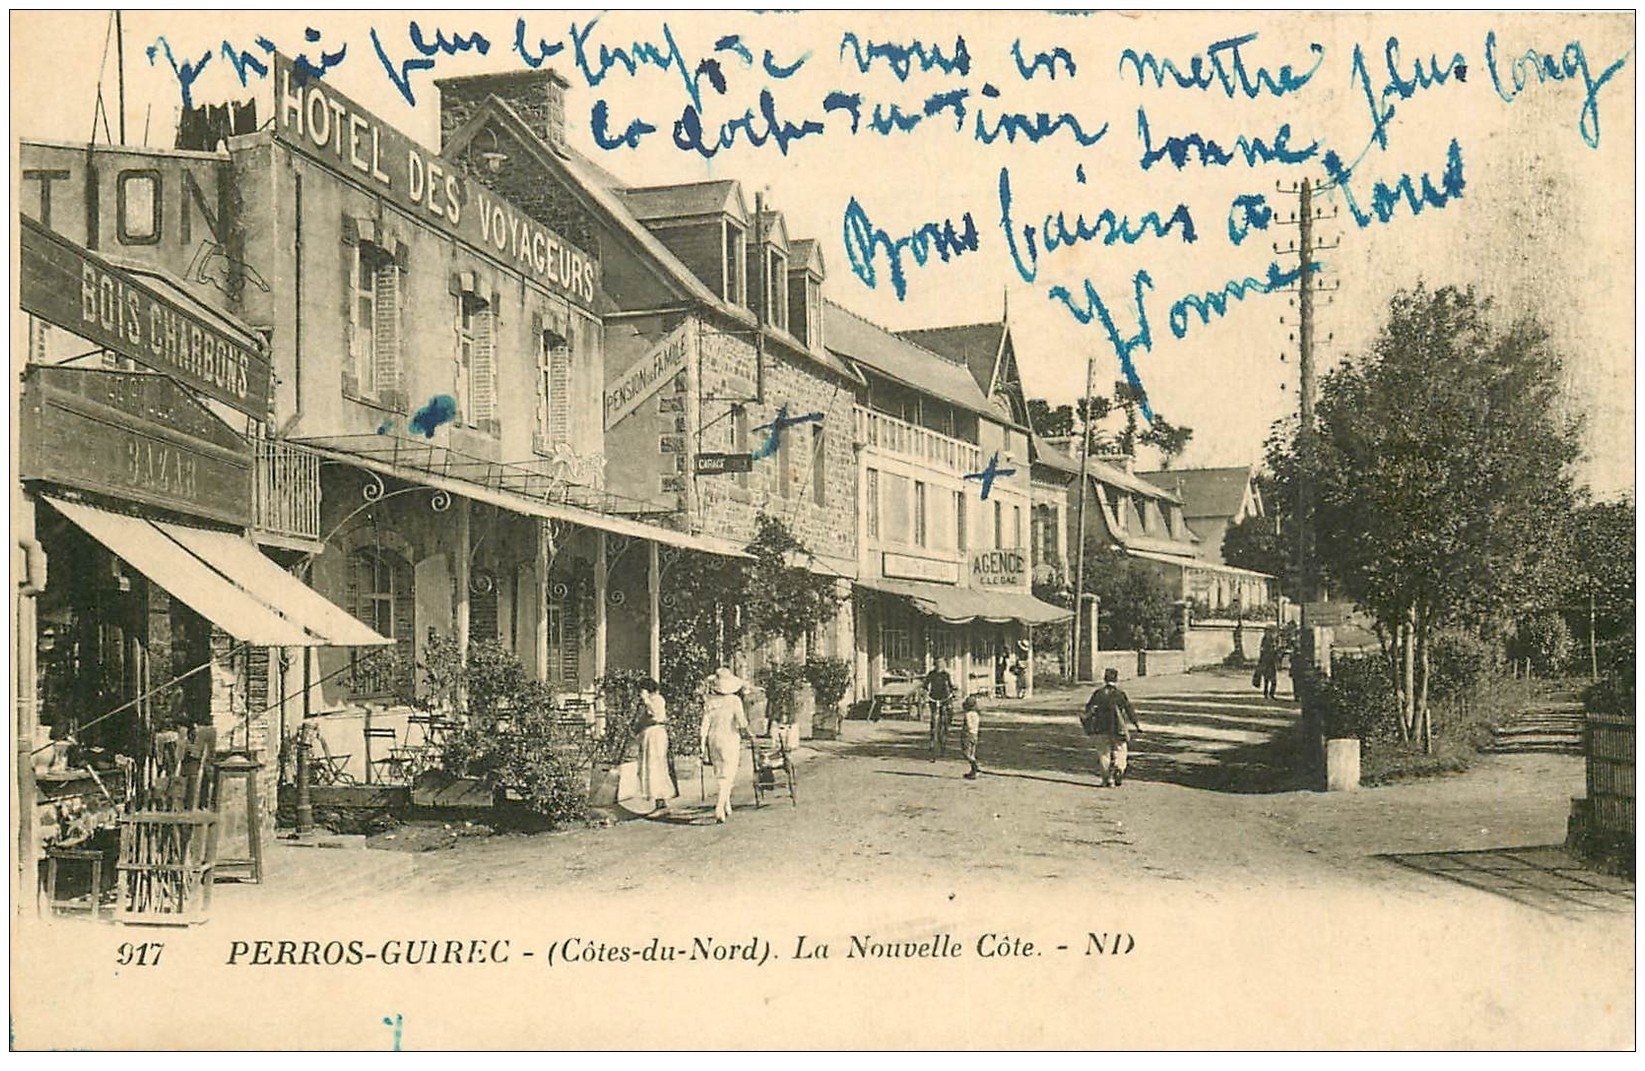 Je n'ai plus le temps de vous en mettre plus long
la cloche du diner sonne
Bons baisers à tous
Yvonne
HOTEL DES VOYAGEURS
TON
BOIS CHARBONS
BAZAR
PENSION DE FAMILLE
GARAGE
AGENCE
917 PERROS-GUIREC - (Côtes-du-Nord). La Nouvelle Côte. - ND